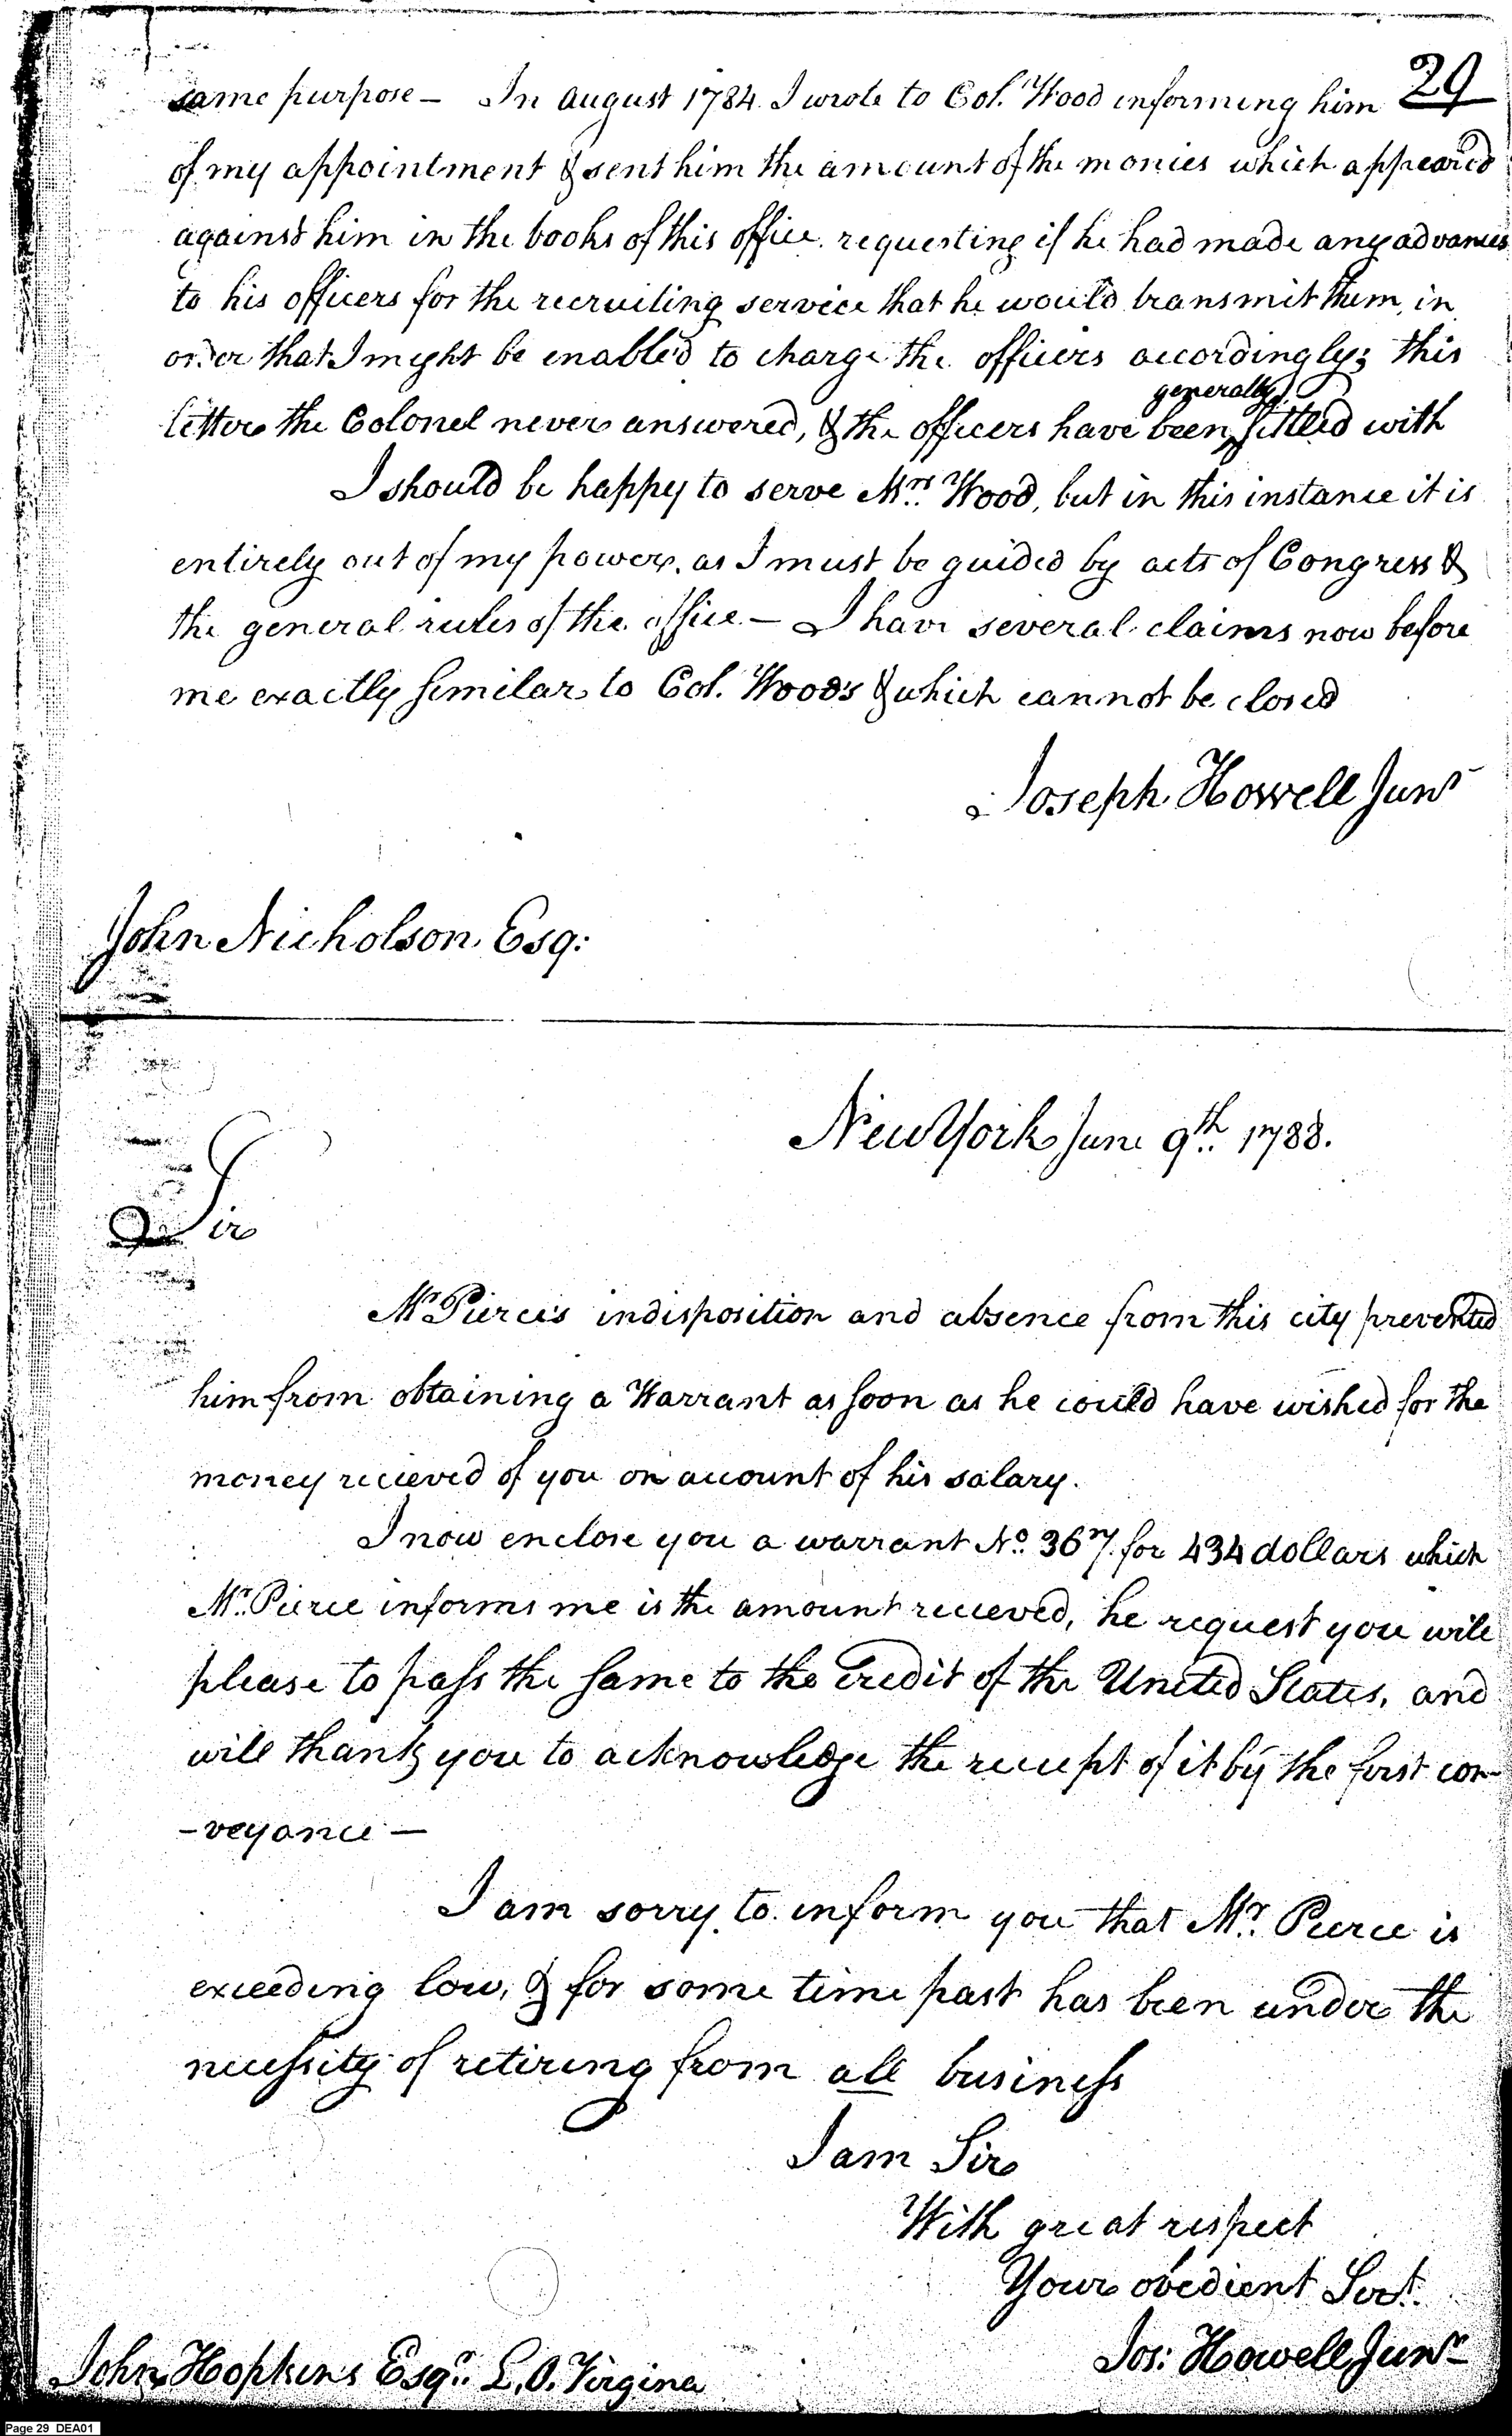 29
same purpose – In August 1784 I wrote to Col. Wood informing him
of my appointment & sent him the amount of the monies which appeared
against him in the books of this office. requesting if he had made any advances
to his officers for the recruiting service that he would transmit them, in
order that I might be enabled to charge the officers accordingly; this
generally
letter the Colonel never answered, & the officers have been settled with
I should be happy to serve Mrs. Wood, but in this instance it is
entirely out of my power, as I must be guided by acts of Congress &
the general rules of the office – I have several claims now before
me exactly similar to Col. Wood's & which cannot be closed
Joseph Howell Junr
John Nicholson Esq:
New York June 9th. 1788.
Sir
Mr Pierce's indisposition and absence from this city prevented
him from obtaining a Warrant as soon as he could have wished for the
money recieved of you on account of his salary.
I now enclose you a warrant No. 367 for 434 dollars which
Mr. Pierce informs me is the amount recieved, he request you will
please to pass the same to the Credit of the United States, and
will thank you to acknowledge the receipt of it by the first con-
-veyance –
I am sorry to inform you that Mr. Pierce is
exceeding low, & for some time past has been under the
necessity of retiring from all business
I am Sir
With great respect
Your obedient Servt.
Jos: Howell Junr
John Hopkins Esqr. L.O. Virgina
Page 29 DEA01